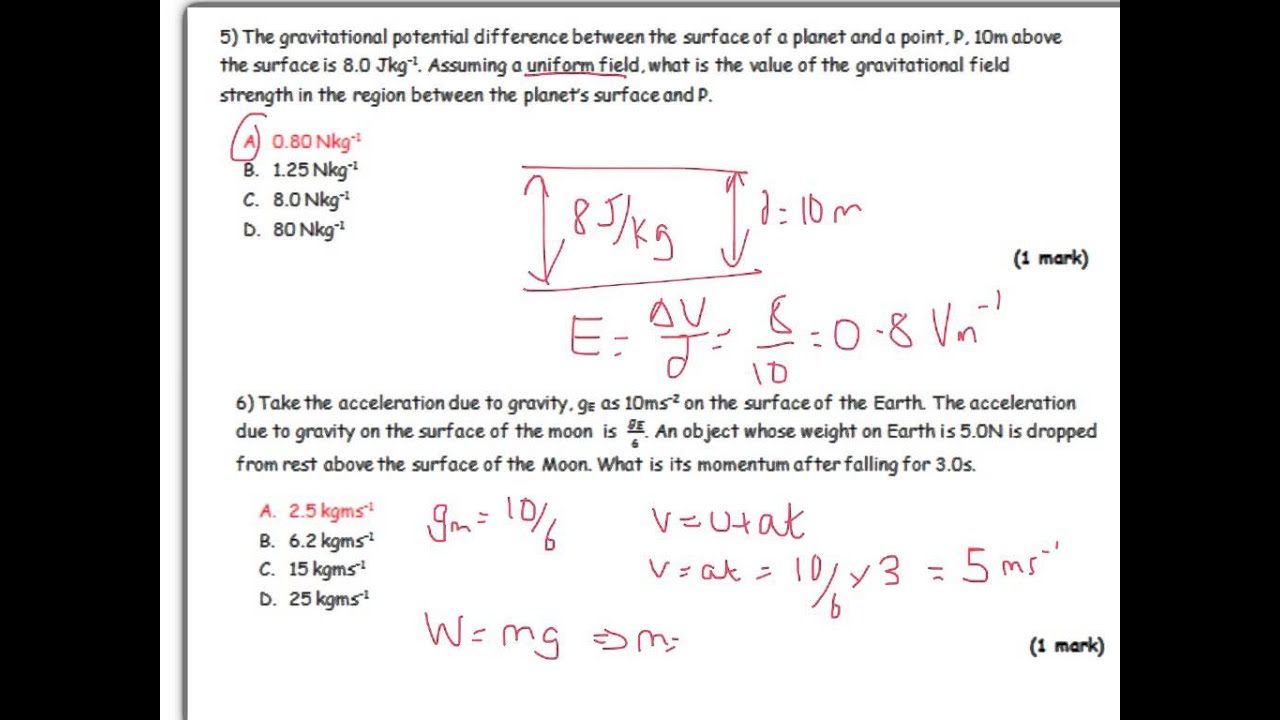 5) The gravitational potential difference between the surface of a planet and a point, P, 10m above
the surface is 8.0 Jkg⁻¹. Assuming a uniform field, what is the value of the gravitational field
strength in the region between the planet's surface and P.
A) 0.80 Nkg⁻¹
B. 1.25 Nkg⁻¹
C. 8.0 Nkg⁻¹
D. 80 Nkg⁻¹
8 J/kg
d = 10 m
(1 mark)
E = ΔV/d = 8/10 = 0.8 Vm⁻¹
6) Take the acceleration due to gravity, gE as 10ms⁻² on the surface of the Earth. The acceleration
due to gravity on the surface of the moon is gE/6. An object whose weight on Earth is 5.0N is dropped
from rest above the surface of the Moon. What is its momentum after falling for 3.0s.
A. 2.5 kgms⁻¹
B. 6.2 kgms⁻¹
C. 15 kgms⁻¹
D. 25 kgms⁻¹
gm = 10/6
v = u + at
v = at = 10/6 × 3 = 5 ms⁻¹
W = mg ⇒ m =
(1 mark)